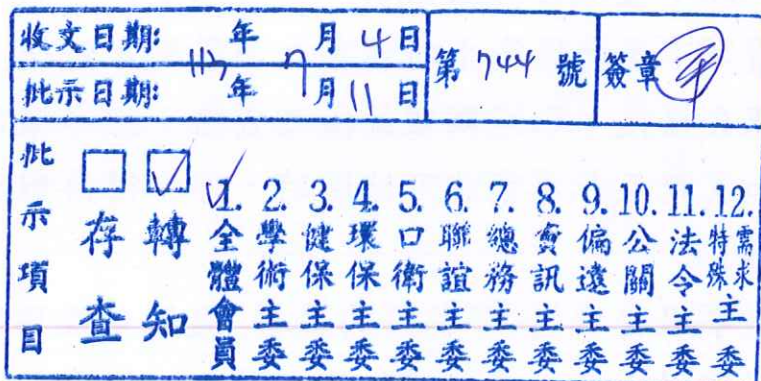 收文日期: 年 月 4 日
113 7
批示日期: 年 月 11 日
第 744 號
簽章
批示項目
存查
轉知
1. 全體會員
2. 學術主委
3. 健保主委
4. 環保主委
5. 口衛主委
6. 聯誼主委
7. 總務主委
8. 資訊主委
9. 偏遠主委
10. 公關主委
11. 法令主委
12. 特殊需求主委